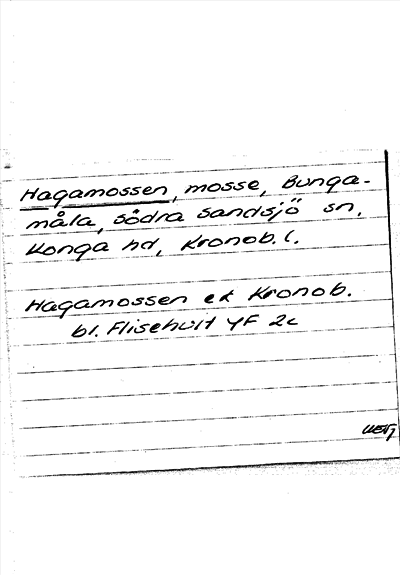 Hagamossen, mosse, Bunga-
måla, Södra Sandsjö sn,
Konga hd, Kronob. l.
Hagamossen ek Kronob.
bl. Flisehult YF 2c